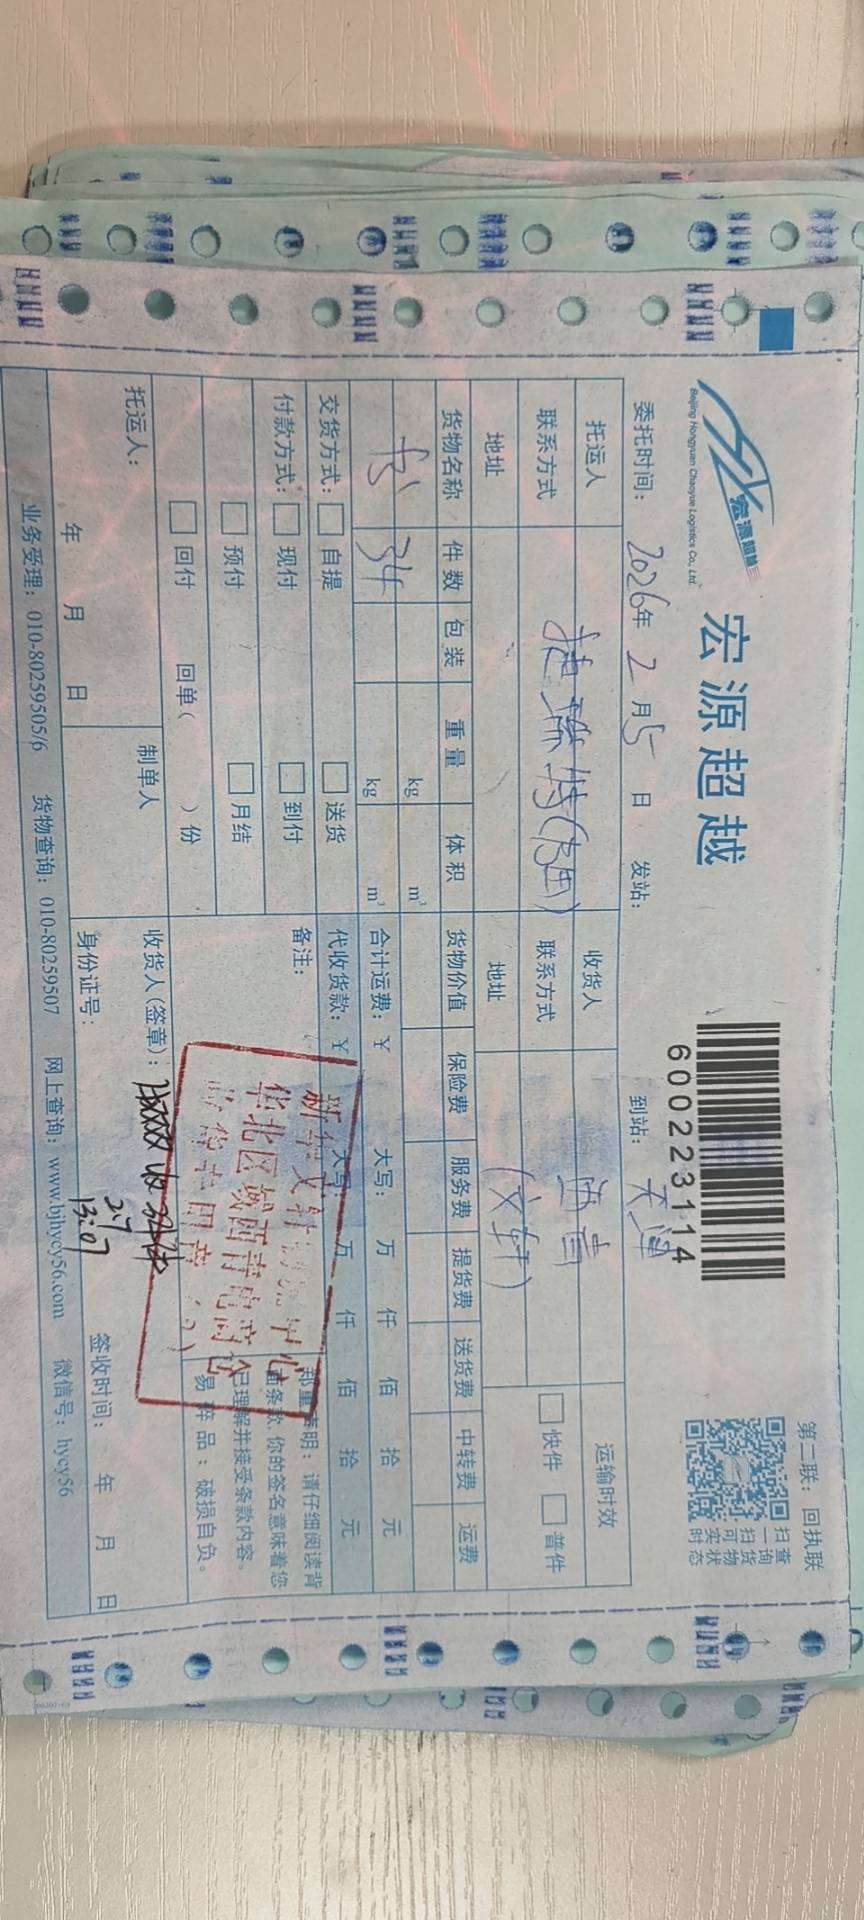 宏源超越
Beijing Hongyuan Chaoyue Logistics Co., Ltd.
宏源超越
6000223114
第二联：回执联
扫一扫可实时
查询货物状态
委托时间： 2026年 2 月 5 日 发站： 到站： 天津
托运人 收货人 西青 运输时效
联系方式 联系方式 快件 普件
地址 地址 (文轩)
货物名称 件数 包装 重量 体积 货物价值 保险费 服务费 提货费 送货费 中转费 运费
书 34 kg m³
kg m³ 合计运费：¥ 大写： 万 仟 佰 拾 元
交货方式： 自提 送货 代收货款：¥ 大写： 万 仟 佰 拾 元
付款方式： 现付 到付 备注：
预付 月结
回付 回单（ ）份
郑重声明：请仔细阅读背
面条款，你的签名意味着您
已理解并接受条款内容。
易碎品：破损自负。
新华文轩 中心
华北区域西青电商仓
托运人： 年 月 日 制单人
收货人（签章）： 收
2.7
13:07
身份证号： 签收时间： 年 月 日
业务受理：010-80259505/6 货物查询：010-80259507 网上查询：www.bjhycy56.com 微信号：hycy56